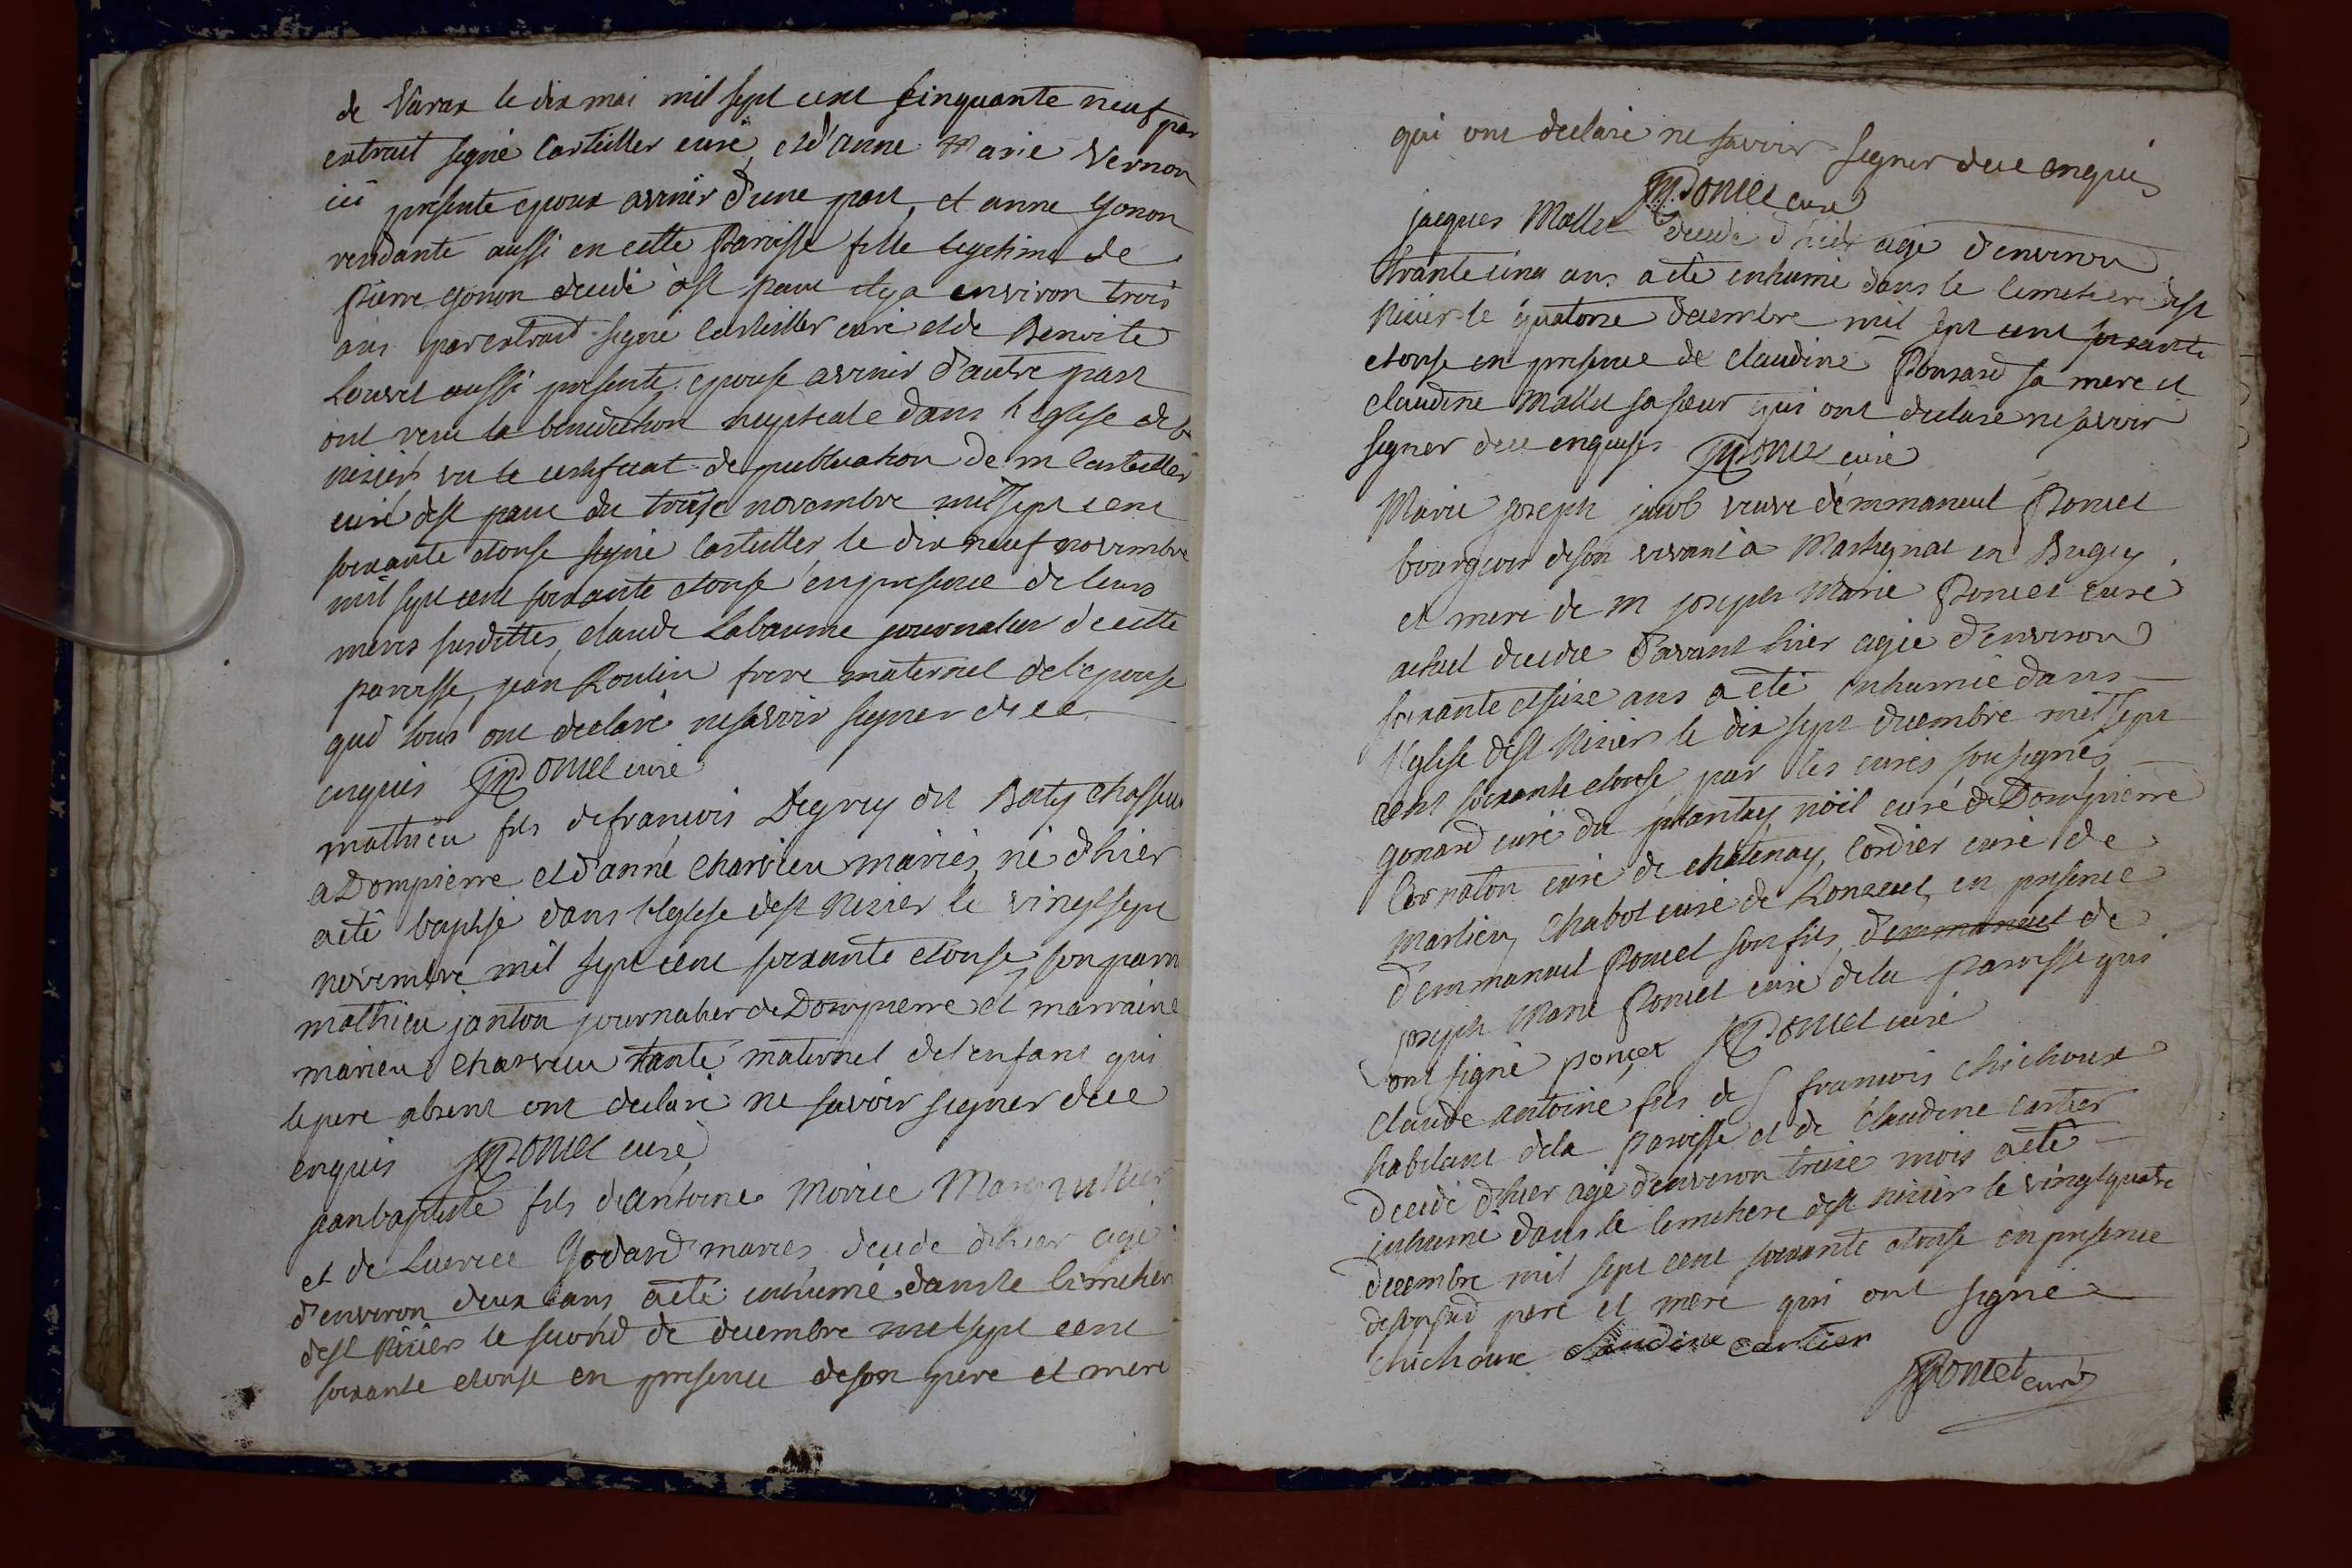 de Varax le dix mai mil sept cent cinquante neuf par
extrait signé Cartellier curé, et d'anne Marie Vernon
ici presente epoux avenir d'une part, et anne Gonon
residante aussi en cette Paroisse fille legitime de
Pierre Gonon decedé à st paul il y a environ trois
ans par extrait signé Cartellier curé et de Benoite
aussi presente epouse avenir d'autre part
ont recu la benediction nuptiale dans l'Eglise de st
nisier vu le certificat de publication de m Cartellier
curé de st paul du treise novembre mil sept cent
soixante et onse signé Cartellier, le dix neuf novembre
mil sept cent soixante et onse en presence de leurs
meres susdittes, claude Labaume journalier de cette
paroisse, jean Roulin frere maternel de l'epouse
qui tous ont declaré ne savoir signer de ce
enquis JMPoncet curé
mathieu fils de francois dit Chasseur
a Dompierre et d'anne Charvieu mariés, né d'hier
a eté baptisé dans l'Eglise de st Nisier le vingt sept
novembre mil sept cent soixante et onse, son parin
mathieu janton journalier de Dompierre et marraine
Charvieu tante maternel de l'enfant qui
le pere absent ont declaré ne savoir signer de ce
enquis JMPoncet curé
jean baptiste fils d'Antoine
et de Godard mariés, decedé d'hier agé
d'environ deux ans a eté inhumé dans le cimetiere
de st Nisier le second de decembre mil sept cent
soixante et onse en presence de son pere et mere
qui ont declaré ne savoir signer de ce enquis
JMPoncet curé
jacques Mallet decedé d'hier agé d'environ
trante cinq ans a eté inhumé dans le cimetiere de st
Nisier le quatorse decembre mil sept cent soixante
et onse en presence de claudine Ponsard sa mere et
claudine Mallet sa sœur qui ont declaré ne savoir
signer de ce enquises JMPoncet curé
Marie joseph jacob veuve d'emmanuel Poncet
bourgeois de son vivant a Martignat en Bugey
et mere de m joseph Marie Poncet curé
actuel decedée d'avant hier agée d'environ
soixante et seize ans a eté inhumée dans
l'Eglise de st Nisier le dix sept decembre mil sept
cent soixante et onse par les curés sousignés
gonard curé du plantay, noil curé de Dompierre
Cornaton curé de chatenay, Cordier curé de
Marlieu, Chabot curé de Ronzuel, en presence
d'emmanuel Poncet son fils, d'emmanuel de
joseph Marie Poncet curé de la paroisse qui
ont signé poncet JMPoncet curé
Claude antoine fils de s francois Chichoux
habitant de la Paroisse et de Claudine Cartier
decedé d'hier agé d'environ treise mois a eté
inhumé dans le cimetiere de st nisier le vingt quatre
decembre mil sept cent soixante et onse en presence
de son sud pere et mere qui ont signé
chichoux claudine cartier
JMPoncet curé